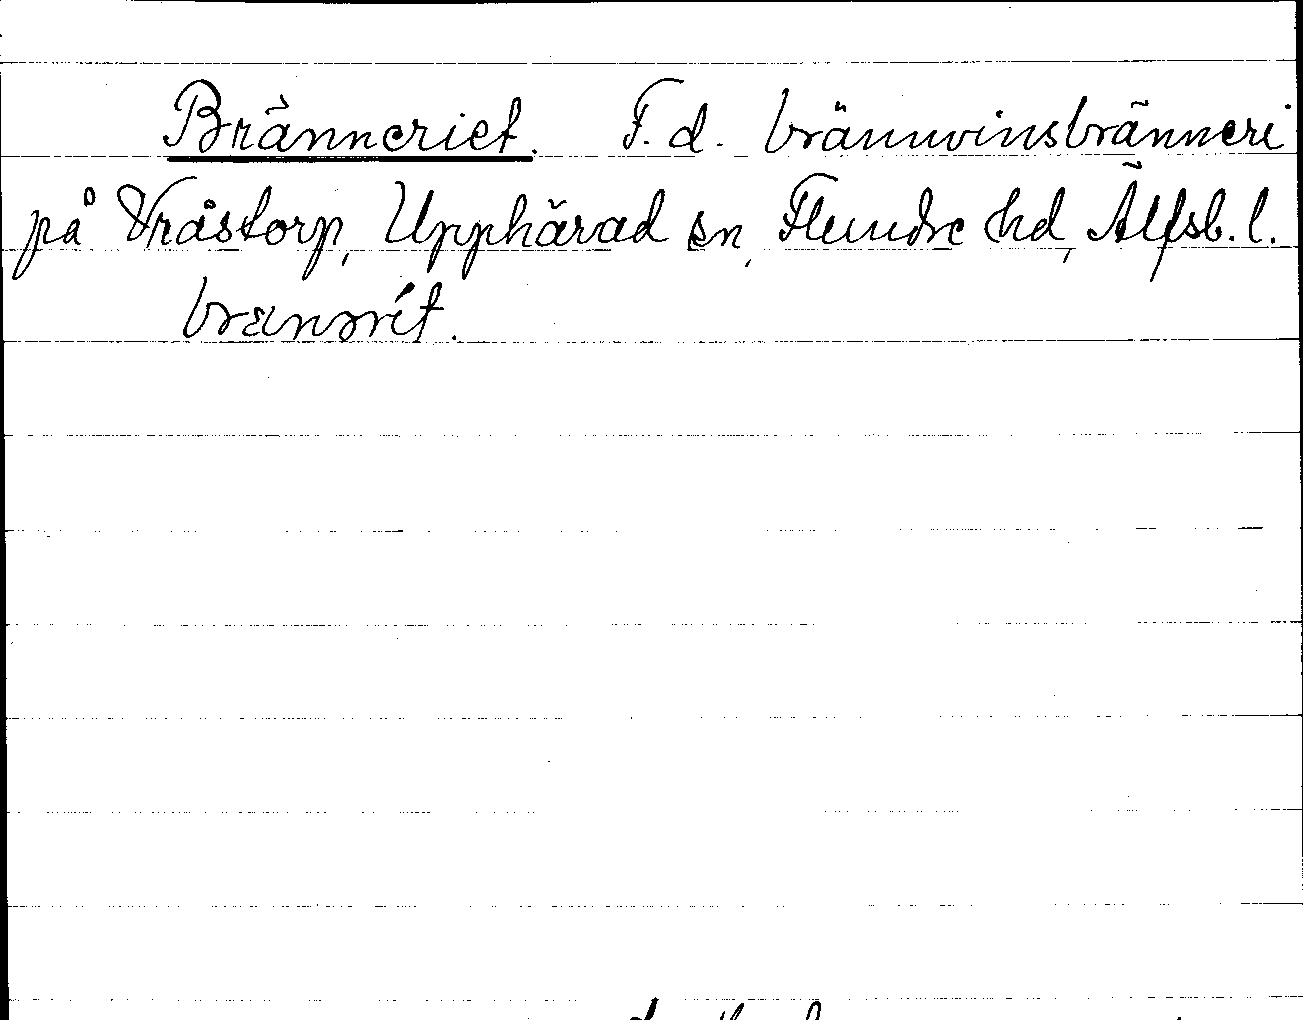 Bränneriet. F.d. brännvinsbränneri
på Vråstorp, Upphärad sn, Flundre hd, Älfsb. l.